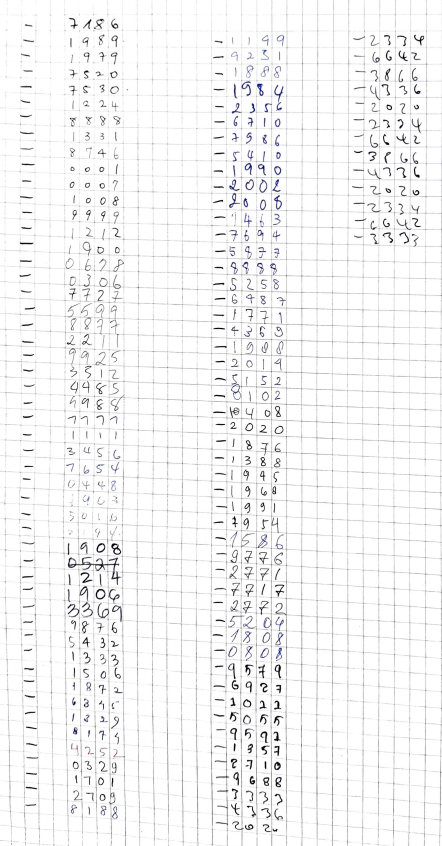 - 7186
- 1989
- 1979
- 7520
- 7530
- 1224
- 8888
- 1331
- 8746
- 0001
- 0007
- 1008
- 9999
- 1212
- 1900
- 0678
- 0306
- 7727
- 5599
- 8877
- 2211
- 9925
- 3512
- 4485
- 4988
- 7777
- 1111
- 3456
- 7654
- 0448
- 1908
- 0527
- 1214
- 1906
- 3369
- 9876
- 5432
- 1333
- 1506
- 1872
- 6345
- 1829
- 8173
- 4252
- 0329
- 1701
- 2709
- 8188
- 1199
- 9231
- 1888
- 1984
- 2356
- 6710
- 7986
- 5410
- 1990
- 2002
- 2008
- 1463
- 7694
- 5877
- 8888
- 5258
- 6487
- 1771
- 4369
- 1988
- 2019
- 5152
- 8102
- 0408
- 2020
- 1876
- 1388
- 1945
- 1968
- 1991
- 7954
- 1586
- 9776
- 2771
- 7717
- 2772
- 5204
- 1808
- 0808
- 9579
- 6927
- 1022
- 5055
- 9592
- 1357
- 2710
- 9688
- 3333
- 4336
- 202
- 2334
- 6642
- 3866
- 4336
- 2020
- 2334
- 6642
- 3866
- 4336
- 2020
- 2334
- 6642
- 3333